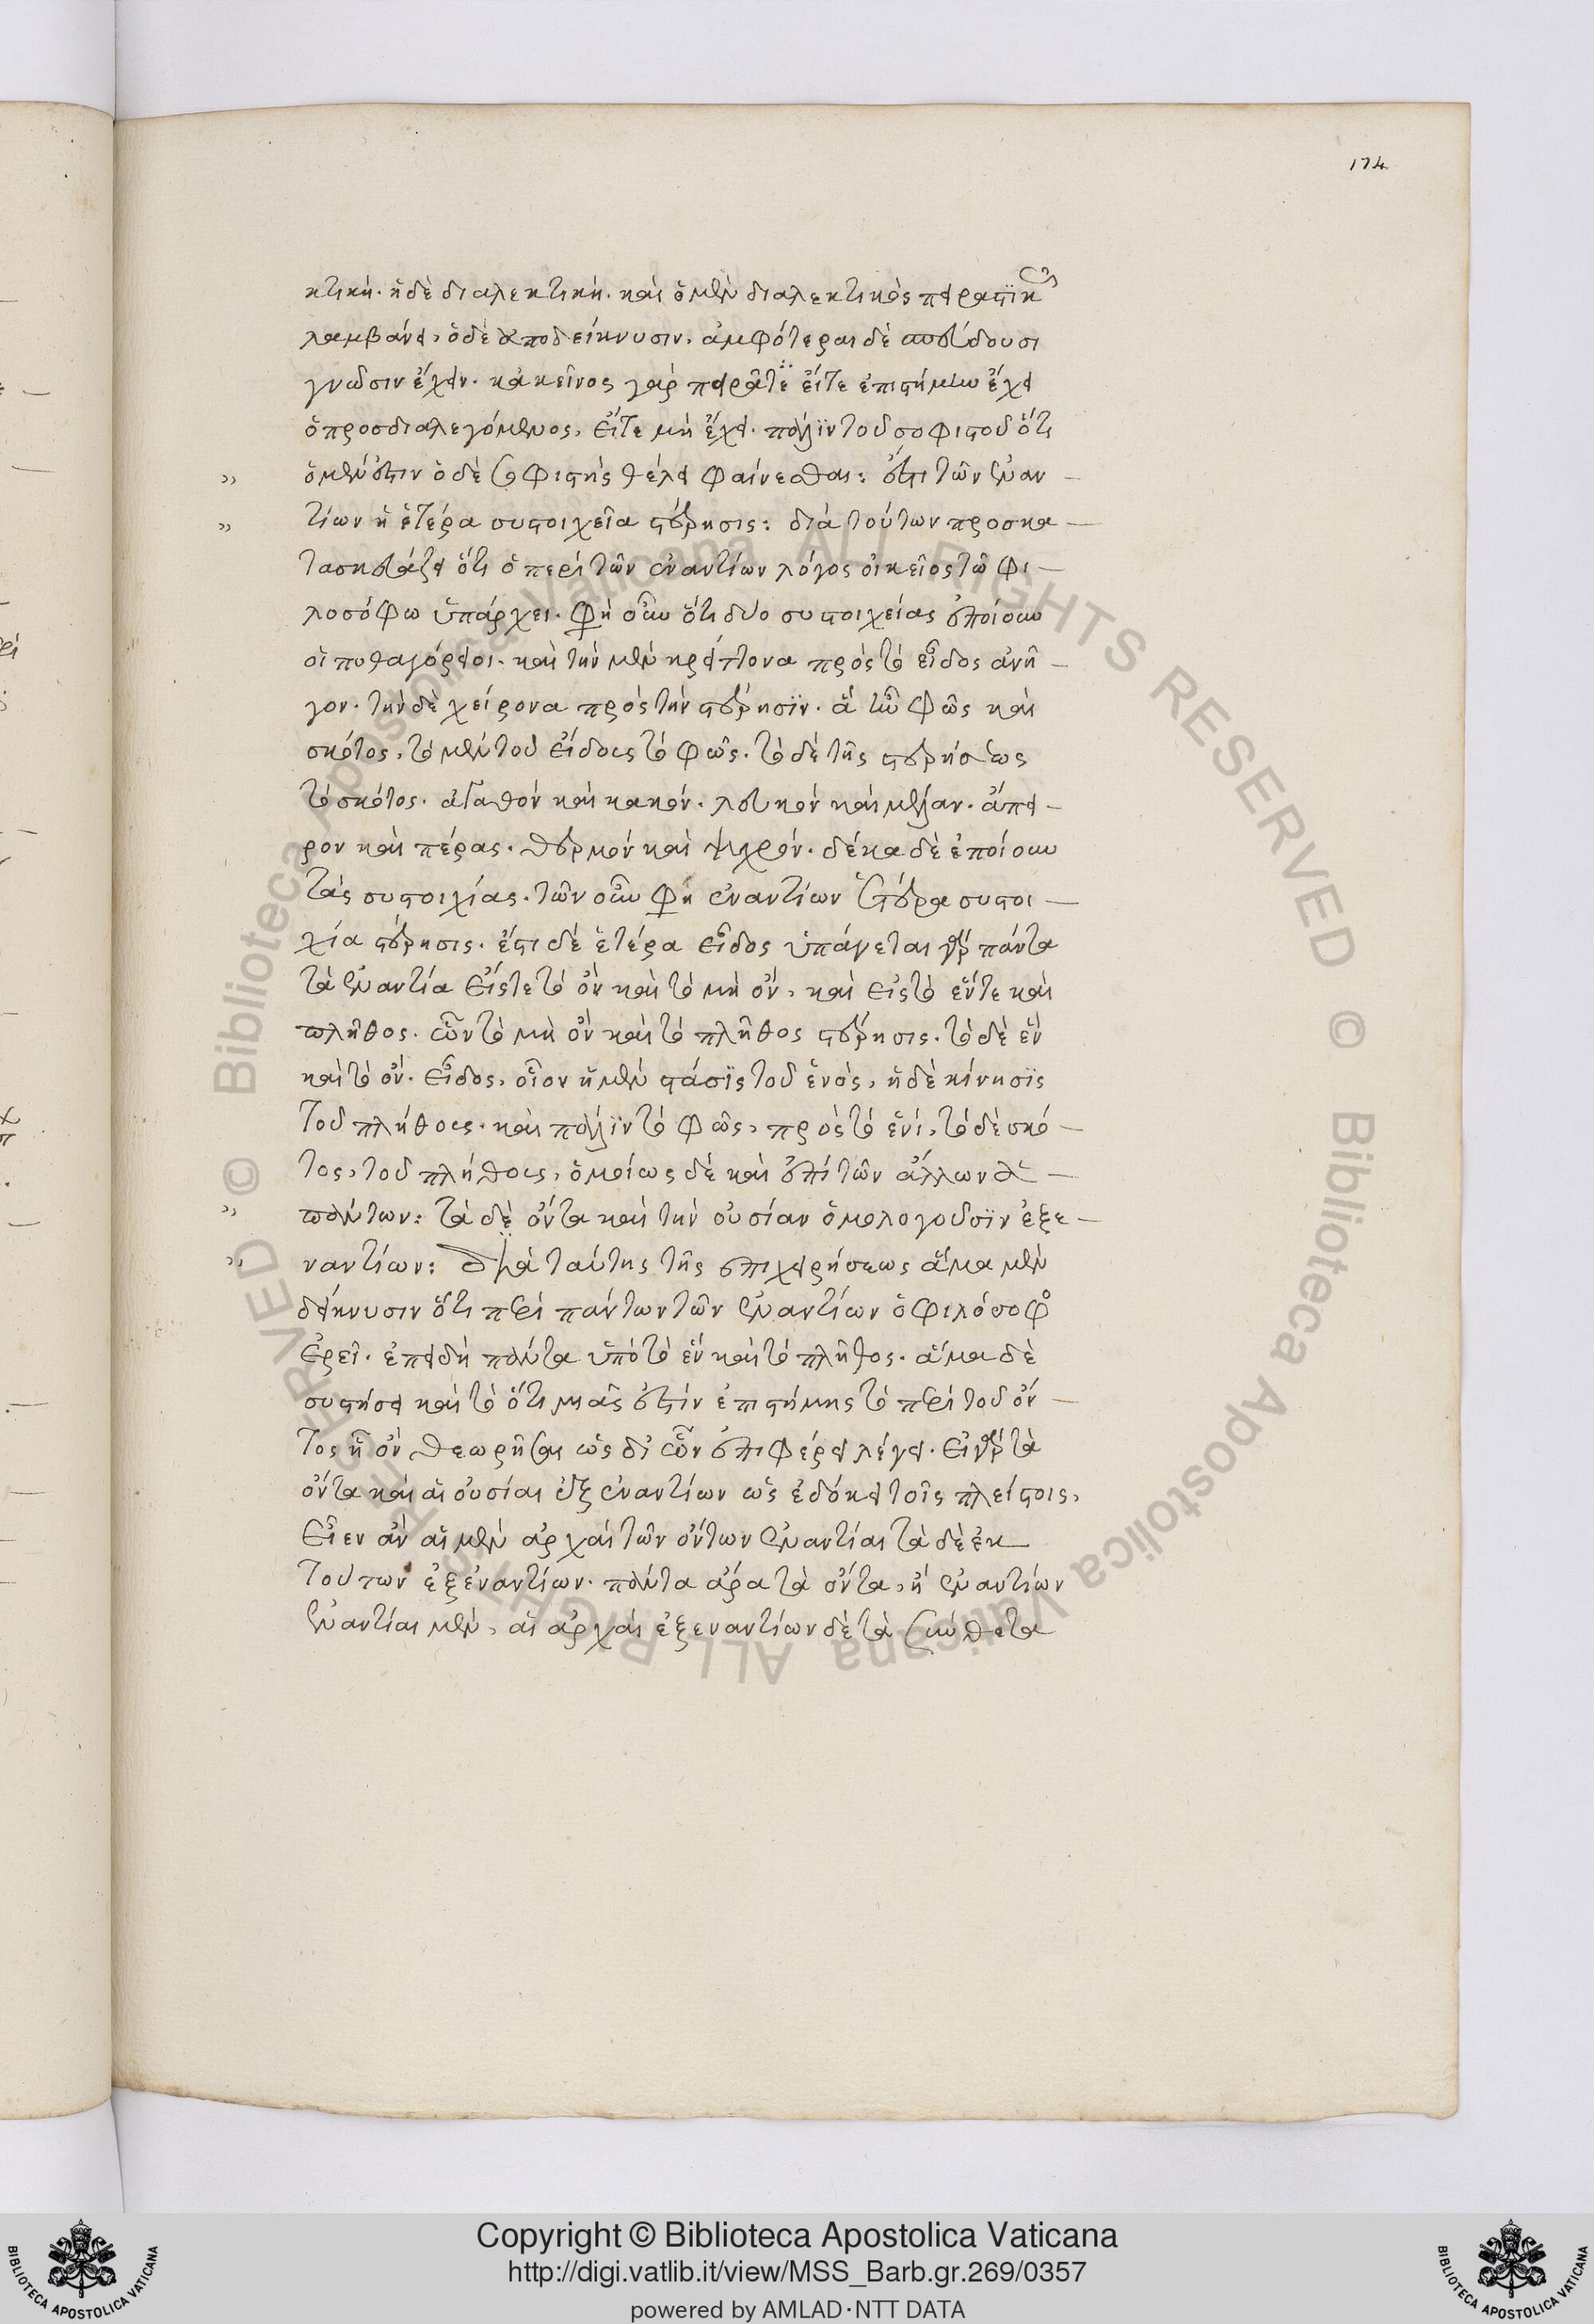 174
κτική. ἡ δὲ διαλεκτική. καὶ ὁ μὲν διαλεκτικὸς πειραστικῶς
λαμβάνει, ὁ δὲ ἀποδείκνυσιν, ἀμφότεραι δὲ
γνῶσιν ἔχειν. κἀκεῖνος γὰρ πειρᾶται εἴτε ἐπιστήμην ἔχει
ὁ προσδιαλεγόμενος, εἴτε μὴ ἔχει. πάλιν τοῦ σοφιστοῦ ὅτι
ὁ μὲν ἔστιν ὁ δὲ σοφιστὴς θέλει φαίνεσθαι: ἔτι τῶν ἐναν-
τίων ἡ ἑτέρα συστοιχεῖα στέρησις: διὰ τούτων προσκα-
τασκευάζει ὅτι ὁ περὶ τῶν ἐναντίων λόγος οἰκεῖος τῶ φι-
λοσόφω ὑπάρχει. φησὶ οὖν ὅτι δύο συστοιχείας ἐποίουν
οἱ πυθαγόρειοι. καὶ τὴν μὲν κρείττονα πρὸς τὸ εἶδος ἀνῆ-
γον. τὴν δὲ χείρονα πρὸς τὴν στέρησιν. φῶς καὶ
σκότος, τὸ μὲν τοῦ εἴδους τὸ φῶς. τὸ δὲ τῆς στερήσεως
τὸ σκότος. ἀγαθὸν καὶ κακόν. λευκὸν καὶ μέλαν. ἄπει-
ρον καὶ πέρας. θερμὸν καὶ ψυχρόν. δέκα δὲ ἐποίουν
τὰς συστοιχίας. τῶν οὖν φησὶ ἐναντίων ἡ ἑτέρα συστοι-
χία στέρησις. ἔστι δὲ ἑτέρα εἶδος ὑπάγεται γὰρ πάντα
τὰ ἐναντία εἴς τε τὸ ὂν καὶ τὸ μὴ ὄν, καὶ εἰς τὸ ἕν τε καὶ
πλῆθος. ὧν τὸ μὴ ὂν καὶ τὸ πλῆθος στέρησις. τὸ δὲ ἓν
καὶ τὸ ὄν. εἶδος, οἷον ἡ μὲν στάσις τοῦ ἑνός, ἡ δὲ κίνησις
τοῦ πλήθους. καὶ πάλιν τὸ φῶς, πρὸς τὸ ἑνί, τὸ δὲ σκό-
τος, τοῦ πλήθους, ὁμοίως δὲ καὶ ἐπὶ τῶν ἄλλων
πάντων: τὰ δὲ ὄντα καὶ τὴν οὐσίαν ὁμολογοῦσιν ἐξ ἐ-
ναντίων: διὰ ταύτης τῆς ἐπιχειρήσεως ἅμα μὲν
δείκνυσιν ὅτι περὶ πάντων τῶν ἐναντίων ὁ φιλόσοφος
ἐρεῖ. ἐπειδὴ πάντα ὑπὸ τὸ ἓν καὶ τὸ πλῆθος. ἅμα δὲ
συστήσει καὶ τὸ ὅτι μιᾶς ἐστὶν ἐπιστήμης τὸ περὶ τοῦ ὄν-
τος ἧ ὂν θεωρῆσαι ὡς δι' ὧν ἐπιφέρει λέγει. εἰ γὰρ τὰ
ὄντα καὶ αἱ οὐσίαι ἐξ ἐναντίων ὡς ἐδόκει τοῖς πλείστοις,
εἶεν ἂν αἱ μὲν ἀρχαὶ τῶν ὄντων ἐναντίαι τὰ δὲ ἐκ
τούτων ἐξ ἐναντίων. πάντα ἄρα τὰ ὄντα, ἢ ἐναντίων
ἐναντίαι μὲν, αἱ ἀρχαὶ ἐξ ἐναντίων δὲ τὰ σύνθετα
Copyright © Biblioteca Apostolica Vaticana
http://digi.vatlib.it/view/MSS_Barb.gr.269/0357
powered by AMLAD·NTT DATA